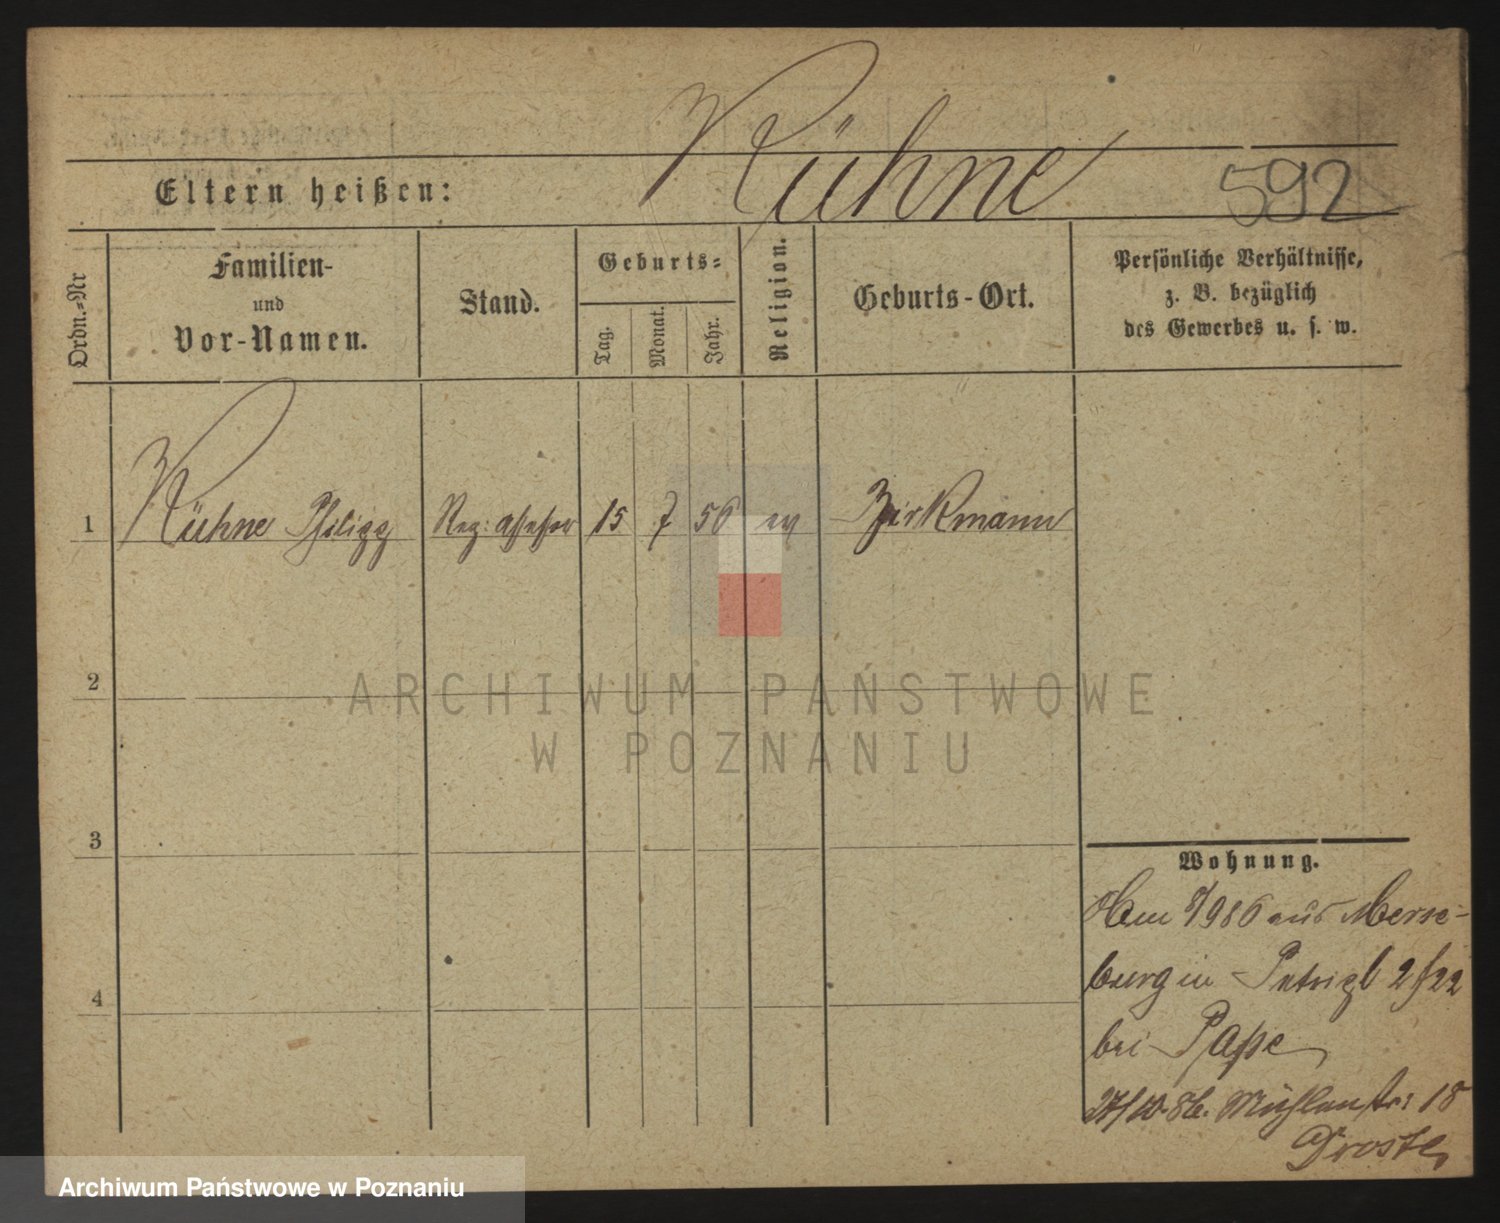 Kühne
592
Eltern heißen:
Ordn.-Nr
Familien-
und
Vor-Namen.
Stand.
Geburts-
Tag.
Monat.
Jahr.
Religion.
Geburts-Ort.
Persönliche Verhältnisse,
z. B. bezüglich
des Gewerbes u. s. w.
1 Kühne Philipp Reg: assessor 15 7 56 ev Birkmann
2
3
4
Wohnung.
86 aus Merse-
burg in Petripl 2/22
bei Pape
27/10. 86. Mühlenstr: 18
Droste
ARCHIWUM PAŃSTWOWE
W POZNANIU
Archiwum Państwowe w Poznaniu